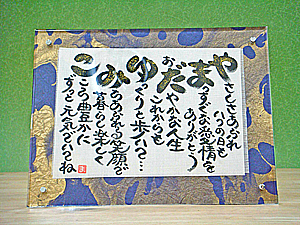 やさしさあふれ
いつの日も
まっすぐな愛情を
ありがとう
おだやかな人生
これからも
ゆっくりと歩いて…
みちあふれる笑顔で
暮らし楽しく
こころ豊かに
ずっと元気でいてね